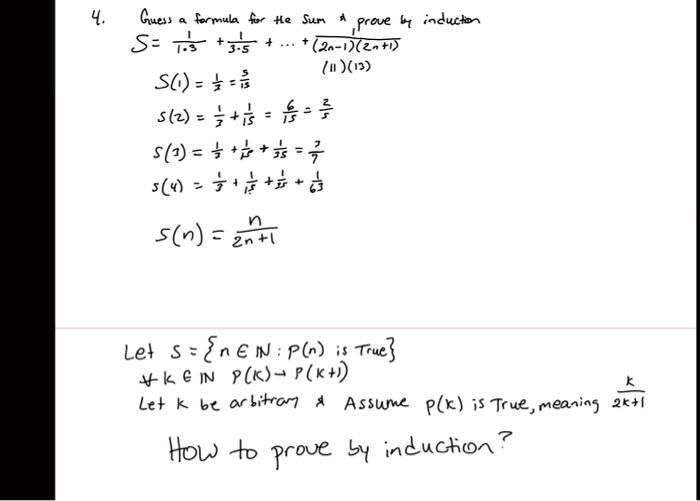 4. Guess a formula for the Sum & prove by induction
S = 1/1·3 + 1/3·5 + ... + 1/(2n-1)(2n+1)
(11)(13)
S(1) = 1/3 = 5/15
S(2) = 1/3 + 1/15 = 6/15 = 2/5
S(3) = 1/3 + 1/15 + 1/35 = 3/7
S(4) = 1/3 + 1/15 + 1/35 + 1/63
S(n) = n/2n+1
Let S = {n ∈ ℕ : P(n) is True}
∀ k ∈ ℕ P(k) → P(k+1)
Let k be arbitrary & Assume P(k) is True, meaning k/2k+1
How to prove by induction?